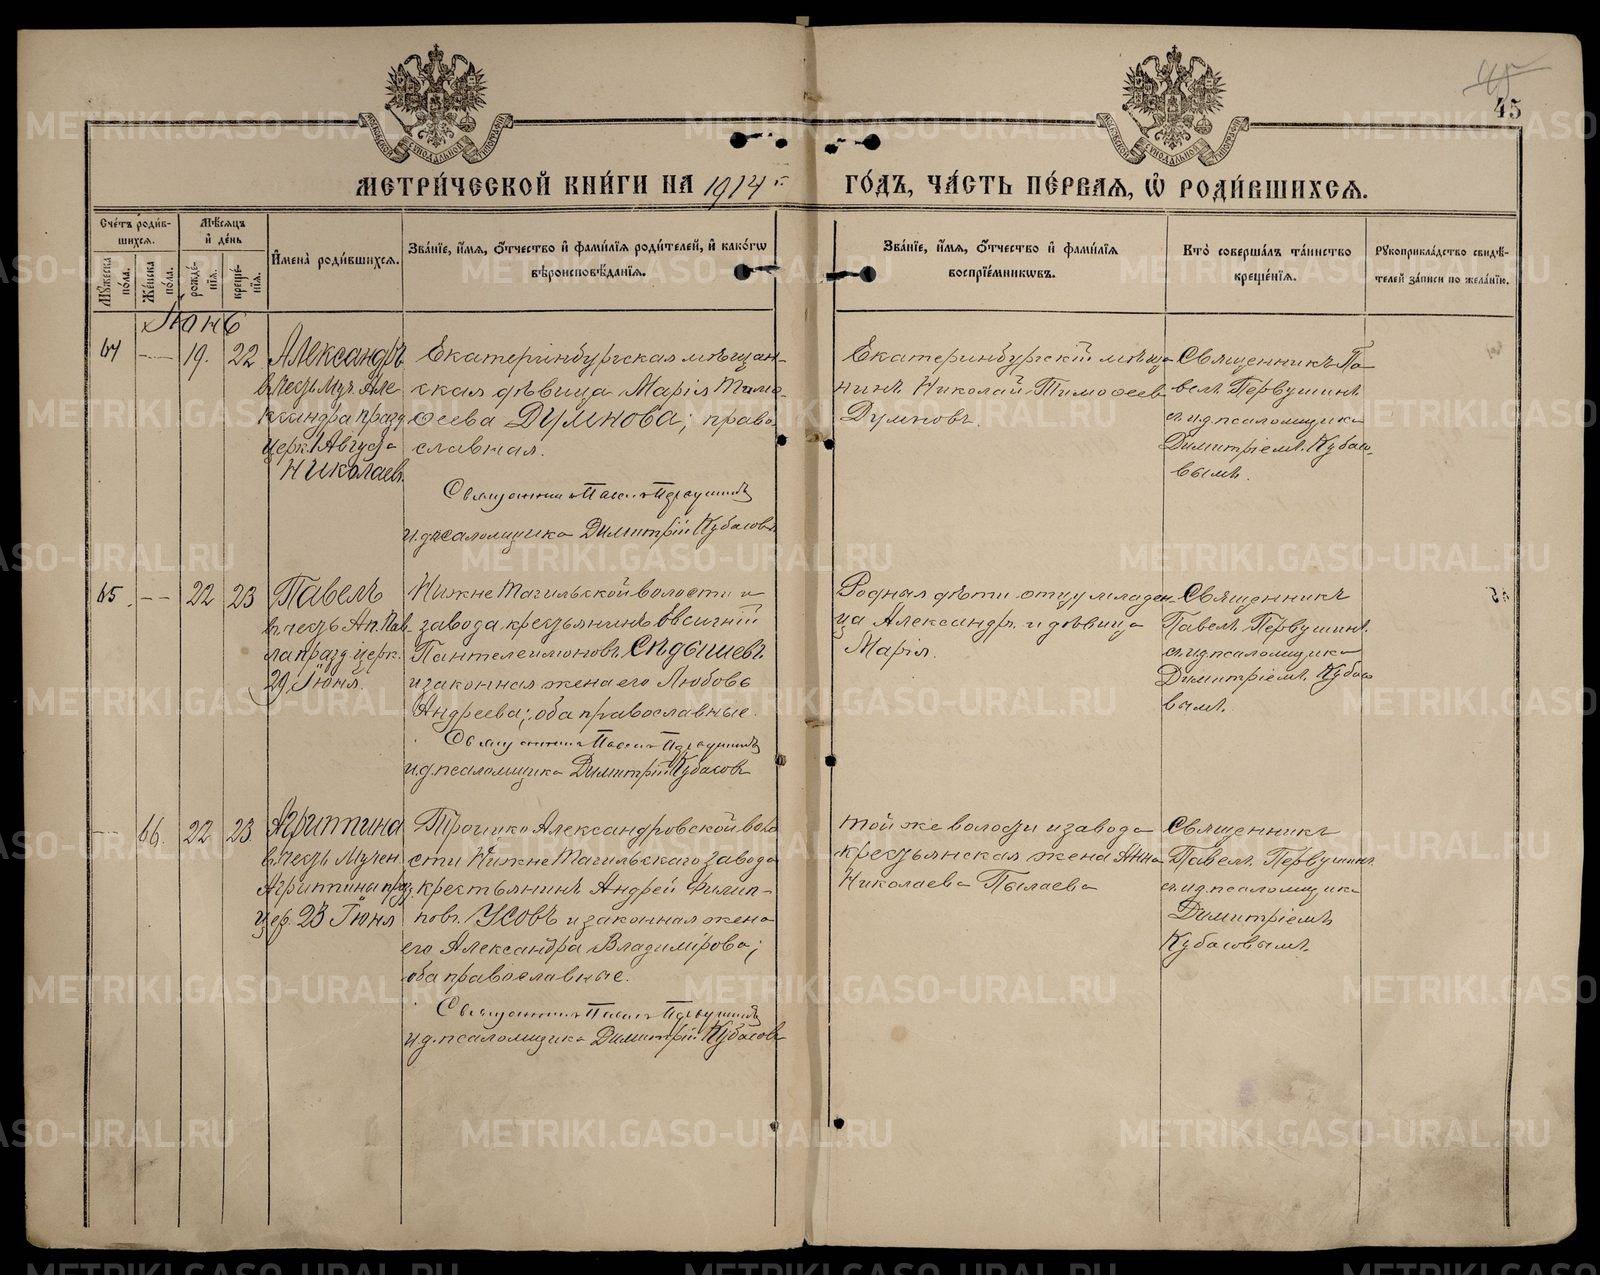 45
45
МЕТРИ́ЧЕСКОЙ КНИ́ГИ НА 1914 г.
ГО́ДЪ, ЧА́СТЬ ПЕ́РВАЯ, Ѽ РОДИ́ВШИХСЯ.
Сче́тъ роди́вшихся.
Му́жеска по́ла.
Же́нска по́ла.
Мѣ́сяцъ и де́нь
рожде́нія.
креще́нія.
И҆мена̀ роди́вшихся.
Зва́ніе, и҆́мя, ѻ҆́тчество и҆ фами́лія роди́телей, и҆ како́гѡ
вѣроисповѣ́данія.
Зва́ніе, и҆́мя, ѻ҆́тчество и҆ фами́лія
воспріе́мниковъ.
Кто̀ соверша́лъ та́инство
креще́нія.
Рꙋкоприкла́дство свидѣ́-
телей за́писи по жела́нію.
Іюнь
64 — 19. 22
Александръ
въ честь муч. Але-
ксандра празд.
церк. 1 Августа
Николаевъ.
Екатеринбургская мѣщан-
ская дѣвица Марія Тимо-
ѳеева Думнова; право-
славная.
Священникъ Павелъ Первушинъ
и.д. псаломщика Димитрій Кубасовъ
Екатеринбургскій мѣща-
нинъ Николай Тимоѳеев
Думновъ.
Священникъ Па-
велъ Первушинъ
съ и.д. псаломщика
Димитріемъ Кубасо-
вымъ.
65. — 22 23
Павелъ
въ честь Ап. Пав-
ла празд. церк.
29 Іюня.
Нижне Тагильской волости и
завода крестьянинъ Евсигній
Пантелеимоновъ Сѣдышевъ
и законная жена его Любовь
Андреева; оба православные.
Священникъ Павелъ Первушинъ
и.д. псаломщика Димитрій Кубасовъ
Родныя дѣти отцу младен-
ца Александръ и дѣвица
Марія.
Священникъ
Павелъ Первушинъ
съ и.д. псаломщика
Димитріемъ Кубасо-
вымъ.
— 66. 22 23
Агриппина
въ честь Мучен.
Агриппины праз.
цер. 23 Іюня
Троицко Александровской воло-
сти Нижне Тагильскаго завода
крестьянинъ Андрей Филип-
повъ Усовъ и законная жена
его Александра Владимірова;
оба православные.
Священникъ Павелъ Первушинъ
и.д. псаломщика Димитрій Кубасовъ
Той же волости и завода
крестьянская жена Анна
Николаева Пылаева
Священникъ
Павелъ Первушинъ
съ и.д. псаломщика
Димитріемъ
Кубасовымъ.
METRIKI.GASO-URAL.RU